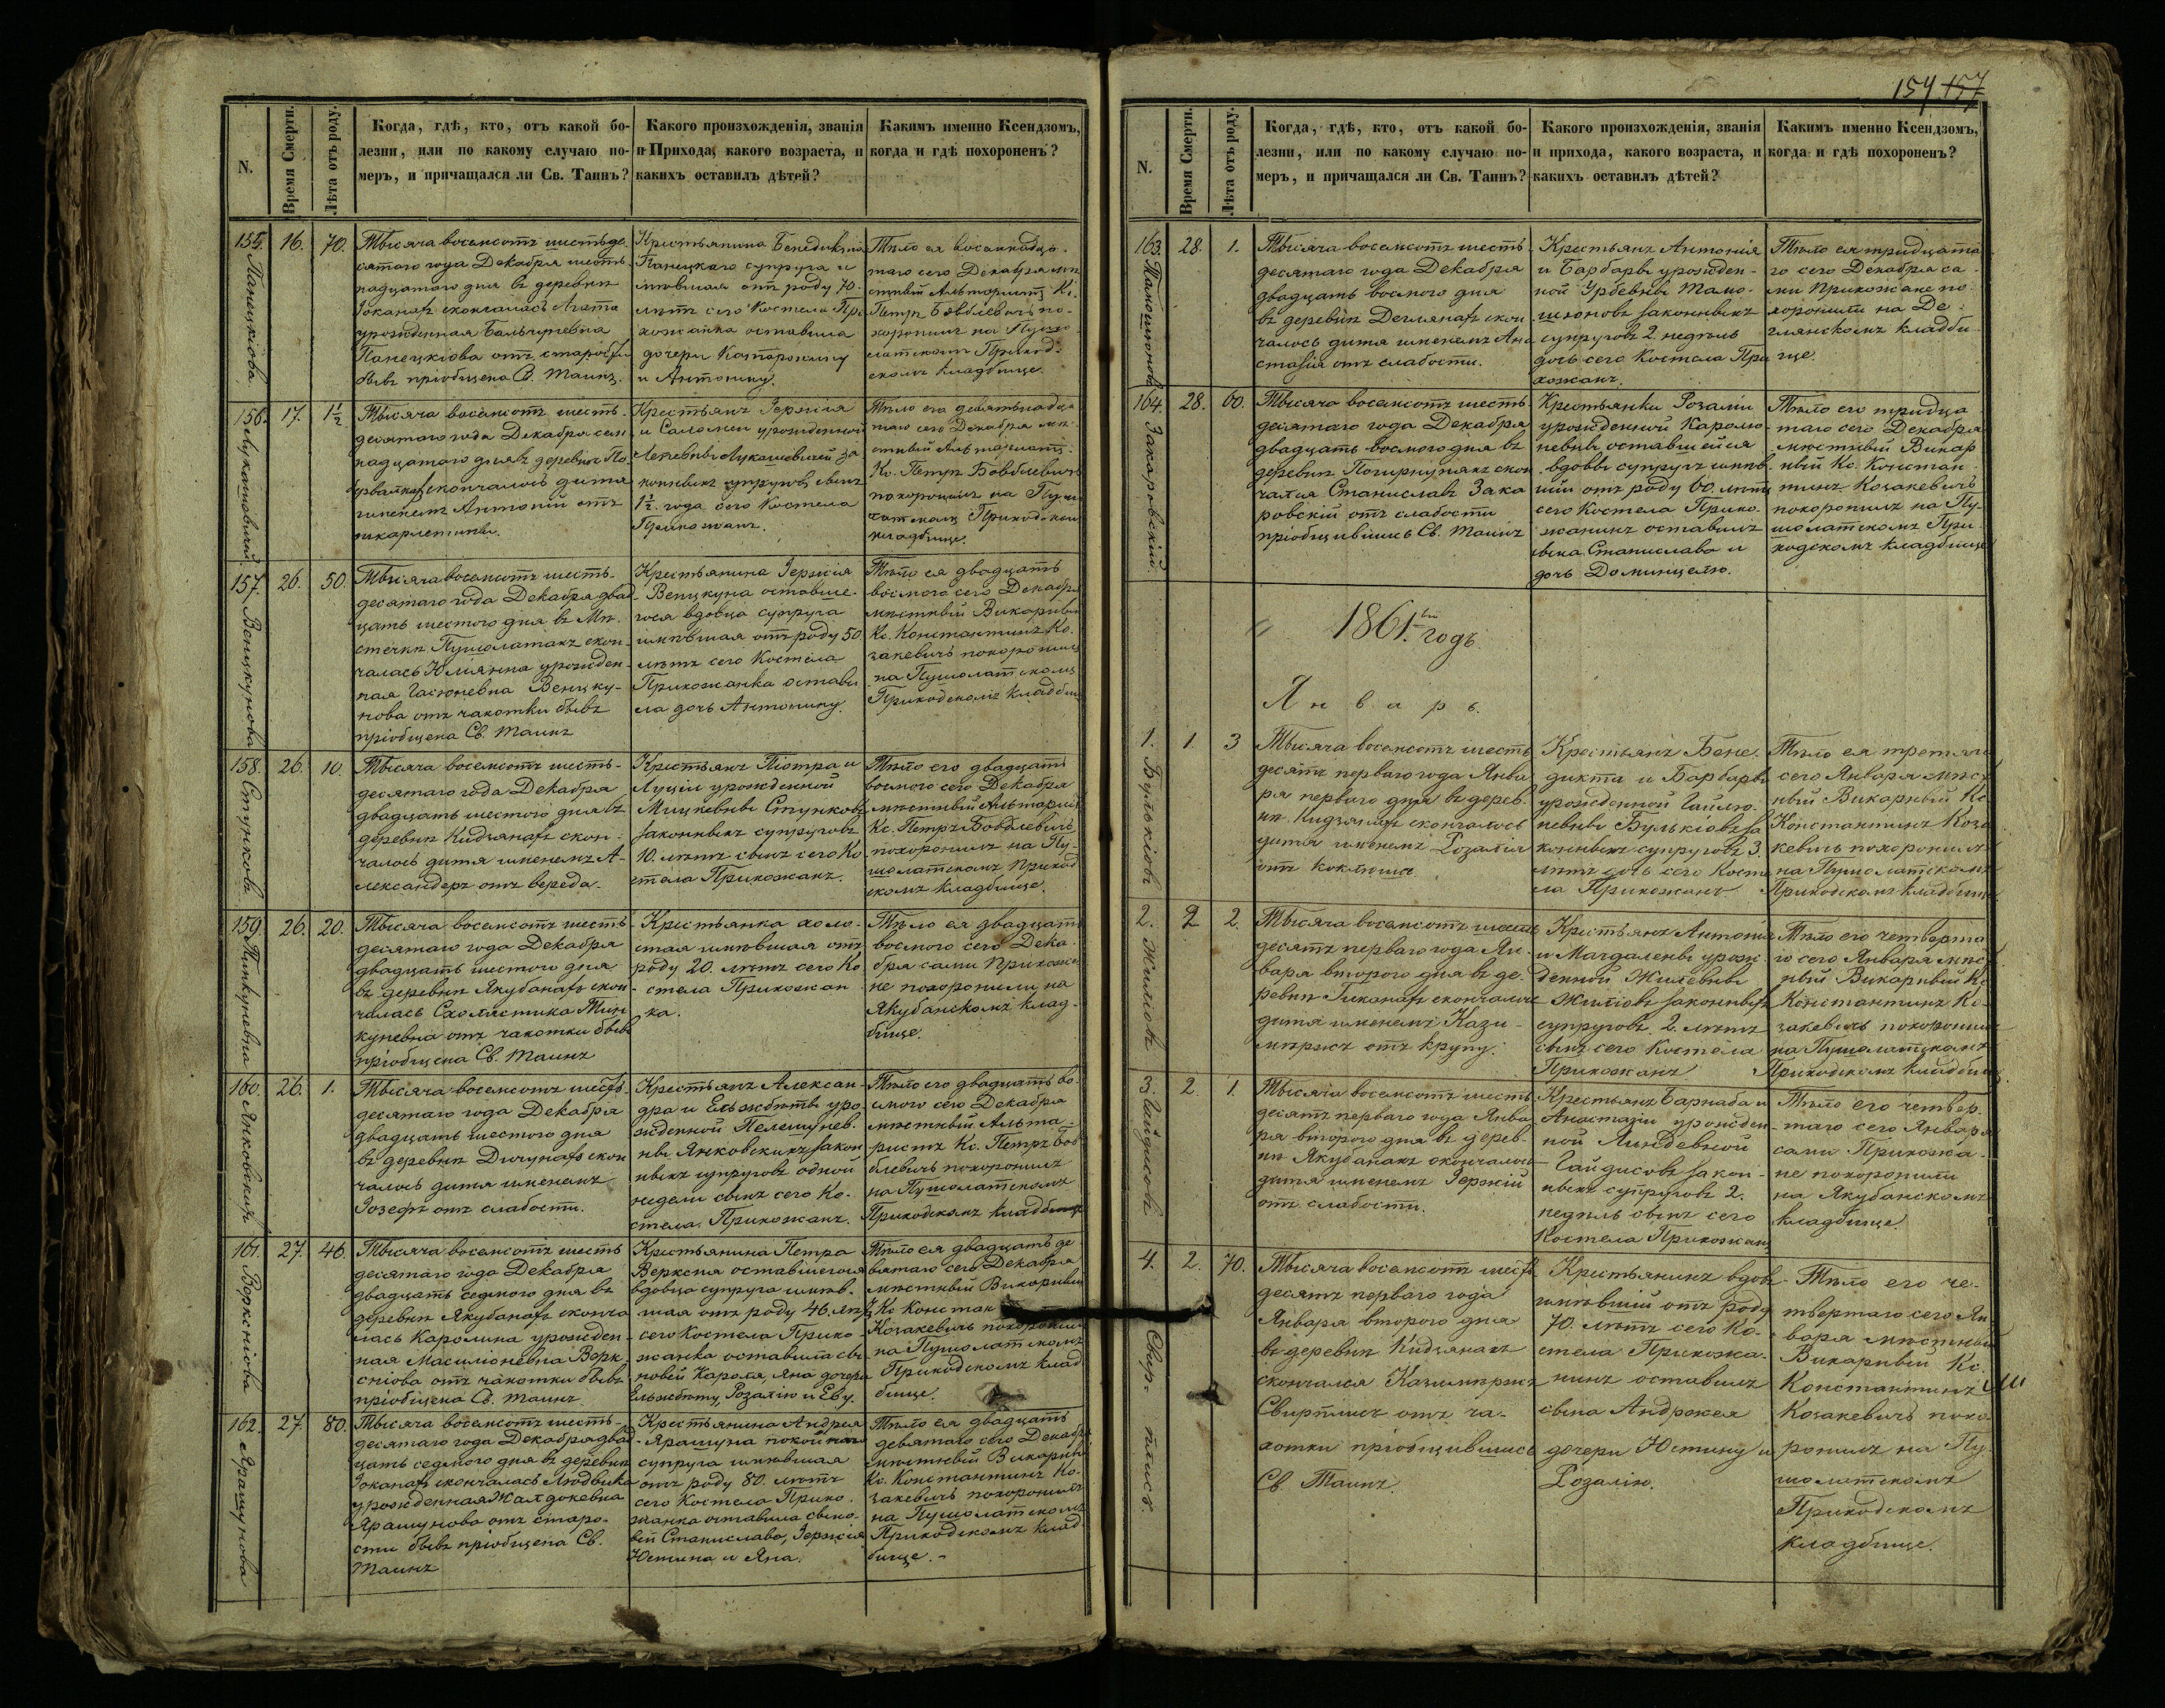 154 157
N.
Время Смерти.
Лѣта отъ роду.
Когда, гдѣ, кто, отъ какой бо-
лезни, или по какому случаю по-
меръ, и причащался ли Св. Таинъ?
Какого произхожденія, званія
и Прихода, какого возраста, и
какихъ оставилъ дѣтей?
Какимъ именно Ксендзомъ,
когда и гдѣ похороненъ?
155.
16.
70.
Тысяча восемсотъ шестьде-
сятаго года Декабря шесть-
надцатаго дня въ деревни
скончалась Агата
урожденная
Панецкіова отъ старости
бывъ пріобщена С. Таинъ.
Крестьянина Бенедикта
Панецкаго супруга и
мѣвшая отъ роду 70.
лѣтъ сего Костела При
хожанка оставила
дочери
и Антонину.
Тѣло ея восемнадца-
таго сего Декабря мѣ
стный Альтаристъ Кс.
Петръ Бовблевичъ по-
хоронилъ на Пушо-
латскомъ Приход-
скомъ кладбище.
156.
17.
1½
Тысяча восемсотъ шесть-
десятаго года Декабря сем
надцатаго дня въ деревни По
скончалось дитя
именемъ Антоній отъ
шкарлетины.
Крестьянъ Іержія
и Саломеи урожденной
Лукашевичей за
конныхъ супруговъ сынъ
1½ года сего Костела
Прихожанъ.
Тѣло его девятьнадца
таго сего Декабря мѣ-
стный Альтаристъ
Кс. Петръ Бовблевичъ
похоронилъ на Пушо
латскомъ Приходском
кладбище.
157.
Венцкунова
26.
50.
Тысяча восемсотъ шесть-
десятаго года Декабря двад
цать шестого дня въ Мѣ-
стечки Пушолатахъ скон-
чалась Юліянна урожден-
ная Венцку-
нова отъ чахотки бывъ
пріобщена Св. Таинъ
Крестьянина Іержія
Венцкуна оставше-
гося вдовца супруга
имѣвшая отъ роду 50
лѣтъ сего Костела
Прихожанка остави
ла дочь Антонину.
Тѣло ея двадцать
восмого сего Декабря
мѣстный Викарный
Кс. Константинъ Ко-
закевичъ похоронилъ
на Пушолатскомъ
Приходскомъ кладбищ
158.
Стунковъ
26.
10.
Тысяча восемсотъ шесть-
десятаго года Декабря
двадцать шестого дня въ
деревни Кидзянахъ скон-
чалось дитя именемъ А-
лександеръ отъ вереда.
Крестьянъ Піотра и
Луціи урожденной
Мицкевны Стунковъ
законныхъ супруговъ
10. лѣтъ сынъ сего Ко
стела Прихожанъ.
Тѣло его двадцать
восмого сего Декабря
мѣстный Альтаристъ
Кс. Петръ Бовблевичъ
похоронилъ на Пу-
шолатскомъ Приход
скомъ кладбище.
159.
26.
20.
Тысяча восемсотъ шесть
десятаго года Декабря
двадцать шестого дня
въ деревни Якубанахъ скон
чалась Схолястика Пин
куневна отъ чахотки бывъ
пріобщена Св. Таинъ
Крестьянка холо-
стая имѣвшая отъ
роду 20. лѣтъ сего Ко
стела Прихожан
ка.
Тѣло ея двадцать
восмого сего Дека-
бря сами Прихожа
не похоронили на
Якубанскомъ клад-
бище.
160.
Янковскій
26.
1.
Тысяча восемсотъ шесть
десятаго года Декабря
двадцать шестого дня
въ деревни скон
чалось дитя именемъ
Іозефъ отъ слабости.
Крестьянъ Алексан-
дра и Ельжбѣты уро
жденной
ны Янковскихъ закон
ныхъ супруговъ одной
недели сынъ сего Ко-
стела Прихожанъ.
Тѣло его двадцать во-
смого сего Декабря
мѣстный Альта
ристъ Кс. Петръ Бов
блевичъ похоронилъ
на Пушолатскомъ
Приходскомъ кладбище
161.
Веркснюова
27.
46.
Тысяча восемсотъ шесть
десятаго года Декабря
двадцать седмого дня въ
деревни Якубанахъ сконча
лась Каролина урожден-
ная Масиліоневна Верк-
сніова отъ чахотки бывъ
пріобщена С. Таинъ
Крестьянина Петра
Верксня оставшегося
вдовца супруга имѣв-
шая отъ роду 46. лѣтъ
сего Костела Прихо
жанка оставила сы-
новей Кароля, Яна дочери
Ельжбѣту, Розалію и Еву.
Тѣло ея двадцать де
вятаго сего Декабря
мѣстный Викарный
Кс. Констан
Козакевичъ похоронил
на Пушолатскомъ
Приходскомъ клад
бище.
162.
Ярашунова
27.
80.
Тысяча восемсотъ шесть-
десятаго года Декабря двад
цать седмого дня въ деревни
скончалась Людвика
урожденная Жалдокевна
Ярашунова отъ старо-
сти бывъ пріобщена Св.
Таинъ
Крестьянина Андрея
Ярашуна покойнаго
супруга имѣвшая
отъ роду 80. лѣтъ
сего Костела Прихо-
жанка оставила сыно-
вей Станислава, Іержія
Юстина и Яна.
Тѣло ея двадцать
девятаго сего Декабр
мѣстный Викарный
Кс. Константинъ Ко-
закевичъ похоронилъ
на Пушолатскомъ
Приходскомъ клад
бище.-
N.
Время Смерти.
Лѣта отъ роду.
Когда, гдѣ, кто, отъ какой бо-
лезни, или по какому случаю по-
меръ, и причащался ли Св. Таинъ?
Какого произхожденія, званія
и прихода, какого возраста, и
какихъ оставилъ дѣтей?
Какимъ именно Ксендзомъ,
когда и гдѣ похороненъ?
163.
28.
1.
Тысяча восемсотъ шесть-
десятаго года Декабря
двадцать восмого дня
въ деревни Деглянахъ скон
чалось дитя именемъ Ана
стазія отъ слабости.
Крестьянъ Антонія
и Барбары урожден-
ной Урбевны
законныхъ
супруговъ 2. недѣль
дочь сего Костела При
хожанъ.
Тѣло ея тридцата
го сего Декабря са-
ми Прихожане по-
хоронили на Де-
глянскомъ кладби-
ще.
164.
Закаровскій.
28.
60.
Тысяча восемсотъ шесть
десятаго года Декабря
двадцать восмого дня въ
деревни скон
чался Станиславъ Зака
ровскій отъ слабости
пріобщившись Св. Таинъ
Крестьянки Розаліи
урожденной Кароло-
невны оставшейся
вдовы супругъ имѣв-
шій отъ роду 60. лѣтъ
сего Костела Прихо-
жанинъ оставилъ
сына Станислава и
дочь Доминцелю.
Тѣло его тридца
таго сего Декабря
мѣстный Викар
ный Кс. Констан
тинъ Козакевичъ
похоронилъ на Пу-
шолатскомъ При-
ходскомъ кладбище
1861.
годъ.
Январь.
1.
Бульковъ
1.
3
Тысяча восемсотъ шесть
десятъ перваго года Янва
ря перваго дня въ дерев-
ни Кидзянахъ скончалось
дитя именемъ Розалія
отъ коклюша.
Крестьянъ Бене-
дикта и Барбары
урожденной Гайлю-
невны Булькіовъ за
конныхъ супруговъ 3.
лѣтъ дочь сего Косте
ла Прихожанъ
Тѣло ея третяго
сего Января мѣст
ный Викарный Кс
Константинъ Коза
кевичъ похоронилъ
на Пушолатскомъ
Приходскомъ кладбище
2.
Жиліовъ
2
2.
Тысяча восемсотъ шесть
десятъ перваго года Ян-
варя второго дня въ де-
ревни скончалось
дитя именемъ Кази-
мѣржъ отъ крупу.
Крестьянъ Антонія
и Магдалены урож-
денной Жилевны
Жиліовъ законныхъ
супруговъ 2. лѣтъ
сынъ сего Костела
Прихожанъ
Тѣло его четверта
го сего Января мѣс
ный Викарный Кс
Константинъ Ко-
закевичъ похоронил
на Пушолатскомъ
Приходскомъ кладбище
3.
Гайдисовъ
2.
1.
Тысяча восемсотъ шесть
десятъ перваго года Янва
ря второго дня въ дерев-
ни Якубанахъ скончалось
дитя именемъ Іержій
отъ слабости.
Крестьянъ Барнаба и
Анастазіи урожден-
ной Линдевной
Гайдисовъ закон-
ныхъ супруговъ 2.
недѣль сынъ сего
Костела Прихожанъ
Тѣло его четвер-
таго сего Января
сами Прихожа-
не похоронили
на Якубанскомъ
кладбище.
4.
2.
70.
Тысяча восемсотъ шесть
десятъ перваго года
Января второго дня
въ деревни Кидзянахъ
скончался Казимѣржъ
Свирплисъ отъ ча-
хотки пріобщившись
Св. Таинъ.
Крестьянинъ вдов
имѣвшій отъ роду
70. лѣтъ сего Ко-
стела Прихожа-
нинъ оставилъ
сына Андржея
дочери Юстину и
Розалію.
Тѣло его че-
твертаго сего Ян
варя мѣстный
Викарный Кс.
Константинъ
Козакевичъ похо
ронилъ на Пу-
шолатскомъ
Приходскомъ
кладбище.